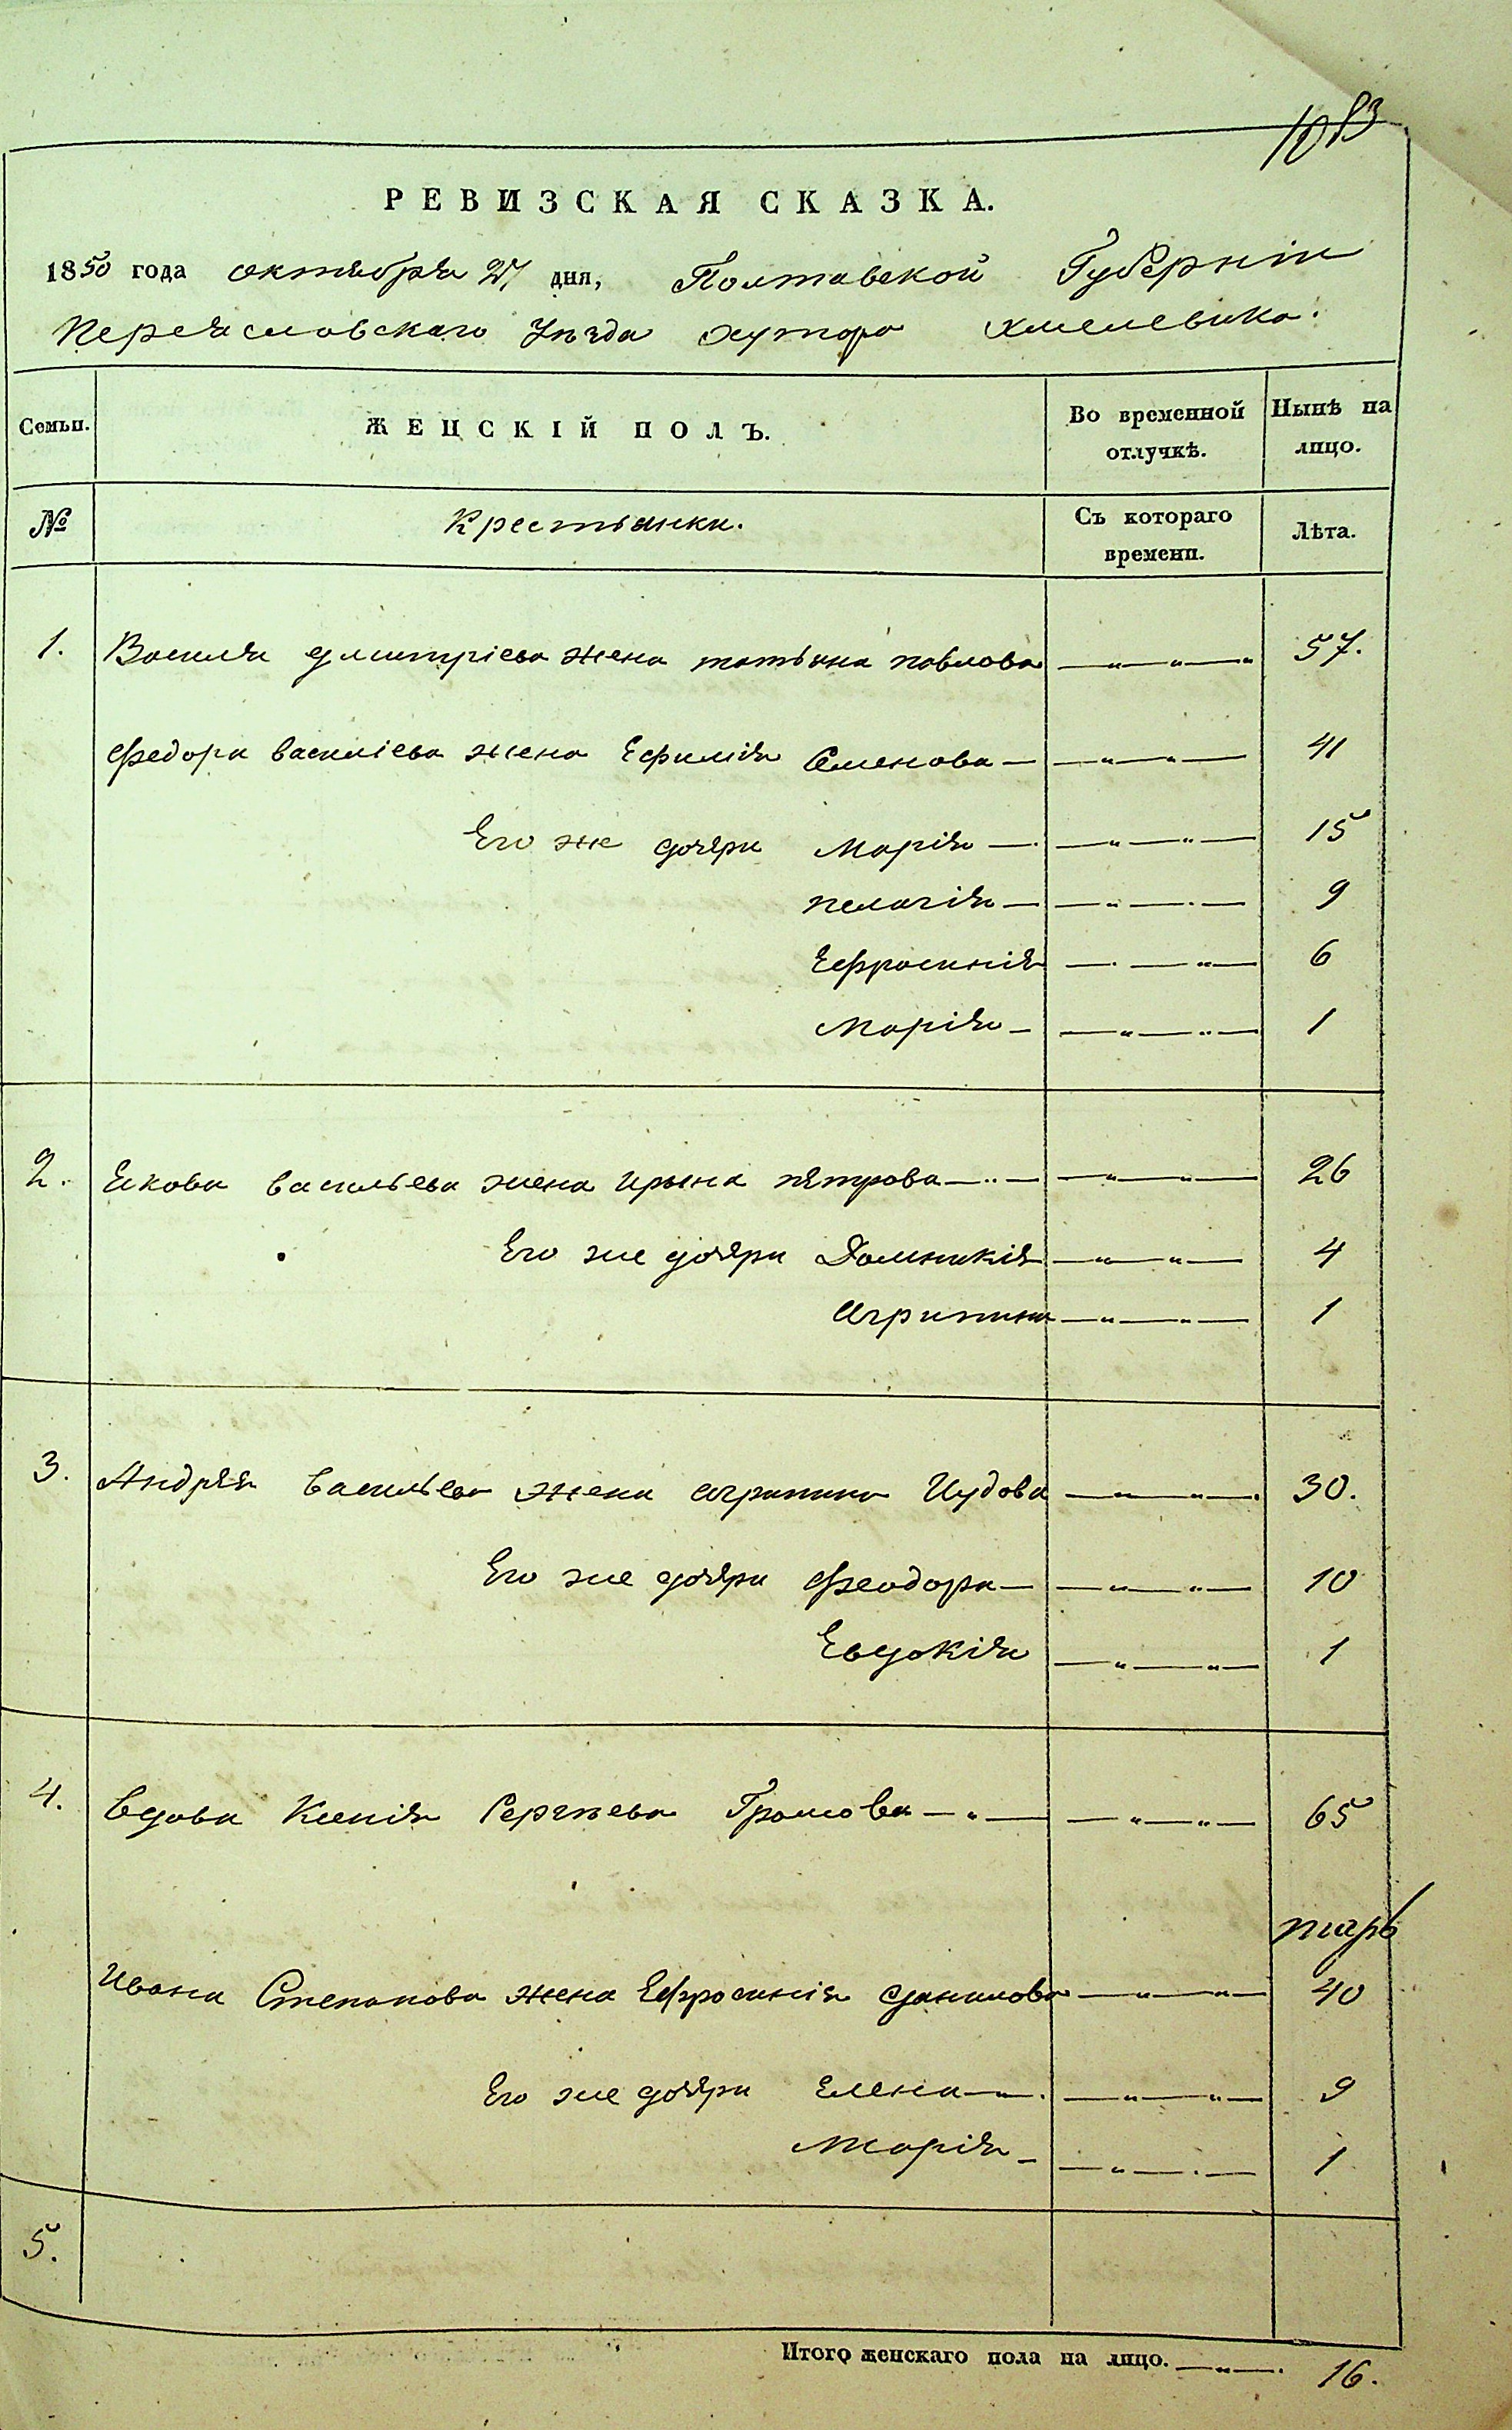 1083
РЕВИЗСКАЯ СКАЗКА.
1850 года октября 27 дня, Полтавской Губерніи
Переясловскаго Уезда хутора Хмелевика.
Семьи. ЖЕНСКІЙ ПОЛЪ. Во временной отлучкѣ. Нынѣ на лицо.
№ Крестьянки. Съ котораго времени. Лѣта.
1. Василя дмитріева жена татьяна павлова 57.
Федора василіева жена Ефимія Семенова 41
Его же дочери Марія 15
пелагія 9
Ефросинія 6
Марія 1
2. Якова васильева жена Ирына петрова 26
Его же дочери Домникія 4
Агрипина 1
3. Андрея васильева жена агрипина Иудова 30.
Его же дочери Феодора 10
Евдокія 1
4. вдова Ксенія Сергеева Громова 65
Ивана Степанова жена Ефросинія данилова 40
Его же дочери Елена 9
Марія 1
5.
Итого женскаго пола на лицо. 16.